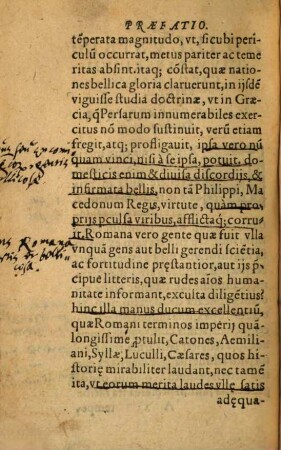 PRÆFATIO.
tẽperata magnitudo, vt, si cubi peri
culũ occurrat, metus pariter ac teme
ritas absint.itaq; cõstat, quæ natio
nes bellica gloria claruerunt, in ijsdẽ
viguisse studia doctrinæ, vt in Græ
cia, q̃ Persarum innumerabiles exer
citus nõ modo sustinuit, verũ etiam
fregit, atq; profligauit, ipsa vero nũ
quam vinci, nisi à se ipsa, potuit, do-
mesticis enim & diuisa discordijs, &
infirmata bellis, non tã Philippi, Ma
cedonum Regis, virtute, quam pro-
prijs pculsa viribus, afflictaq; corru-
it. Romana vero gente quæ fuit vlla
vnquã gens aut belli gerendi sciẽtia,
ac fortitudine pręstantior, aut ijs p̃
cipuè litteris, quæ rudes aĩos huma-
nitate informant, exculta diligẽtius?
hinc illa manus ducum excellentiũ,
quæ Romani terminos imperij quã-
longissime ꝓtulit, Catones, Aemili-
ani, Syllæ, Luculli, Cæsares, quos hi-
storię mirabiliter laudant, nec tamẽ
ita, vt eorum merita laudes vllę satis
adęqua-